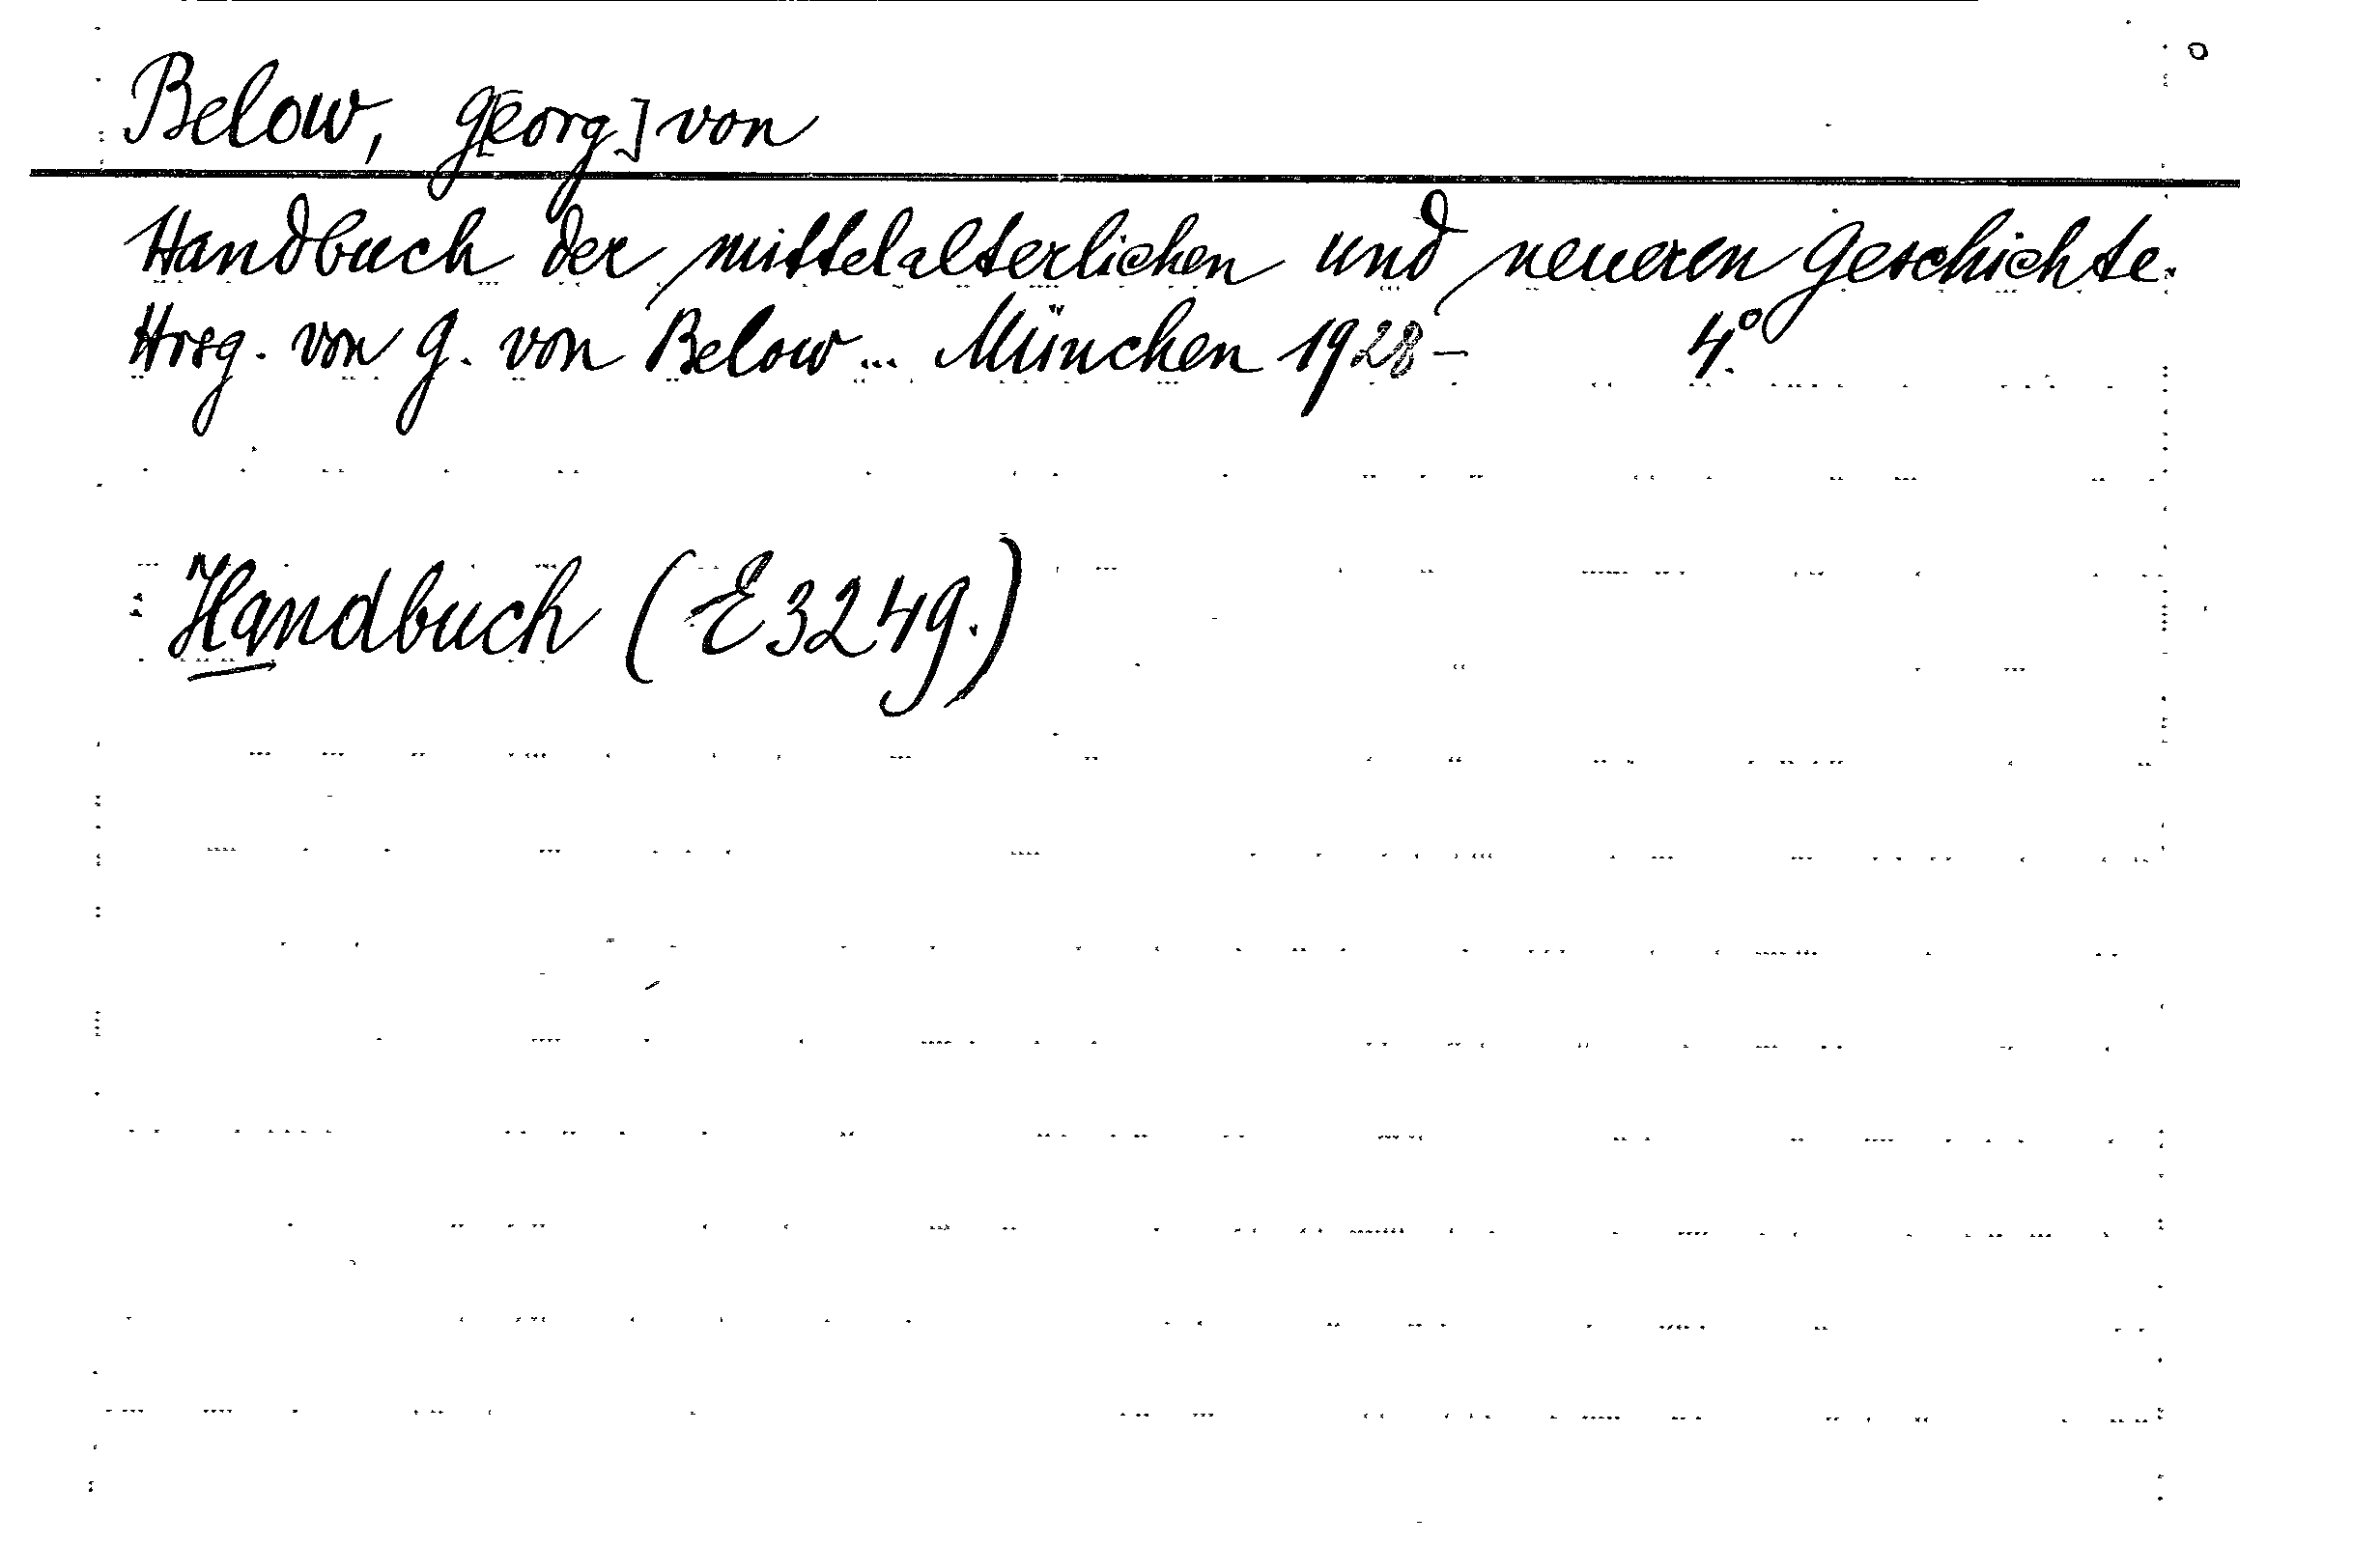 Below, G[eorg] von
Handbuch der mittelalterlichen und neueren Geschichte.
Hrsg. von G. von Below... München 1928- 4.°
Handbuch (E 3249.)